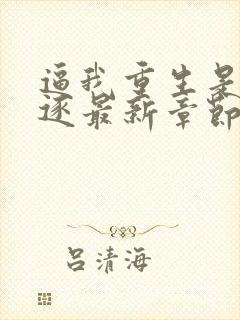 逼我重生是
逐最新章节
吕清海